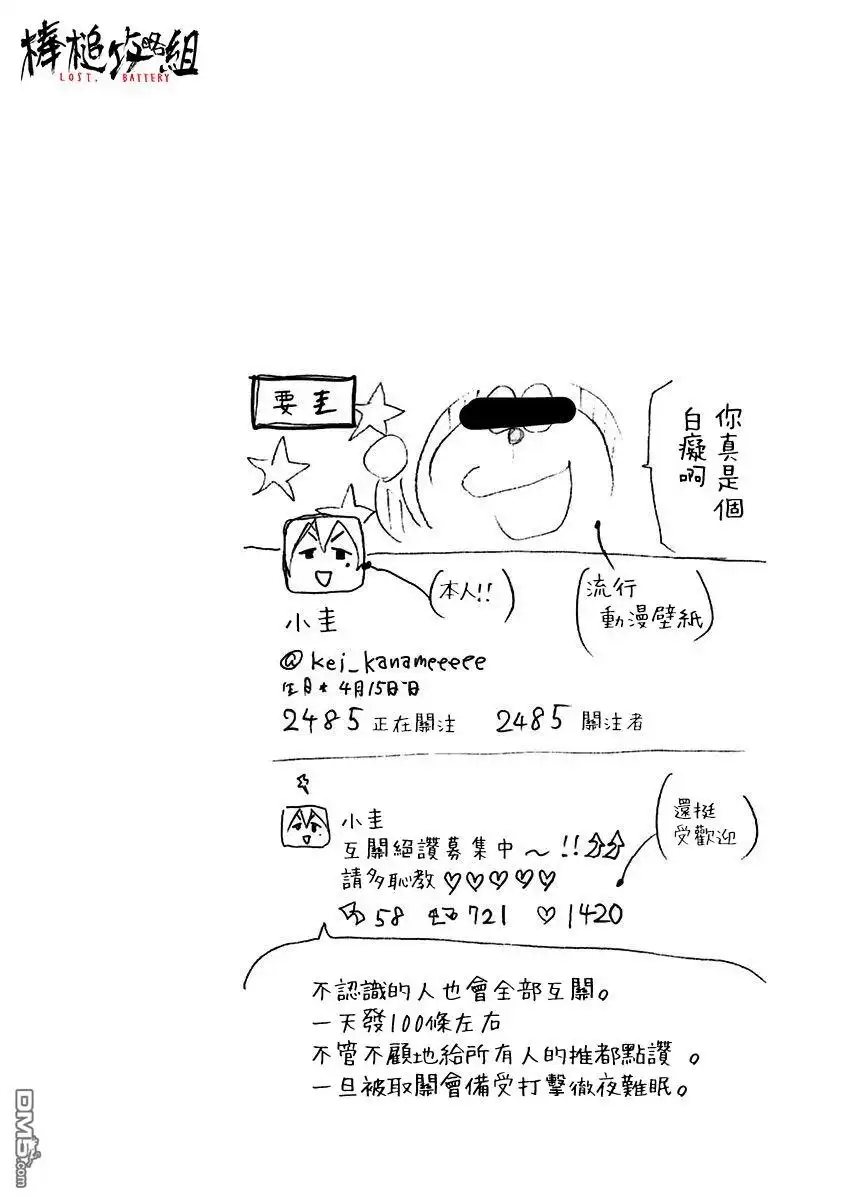 棒槌攻略組
LOST. BATTERY
要圭
你真是個
白癡啊
(本人!!)
(流行
動漫壁紙)
小圭
@kei_kanameeeee
生日★4月15日
2485 正在關注 2485 關注者
(還挺
受歡迎)
小圭
互關絕讚募集中～!!
請多恥教♡♡♡♡♡
58 721 ♡1420
不認識的人也會全部互關。
一天發100條左右
不管不顧地給所有人的推都點讚。
一旦被取關會備受打擊徹夜難眠。
DM5.com